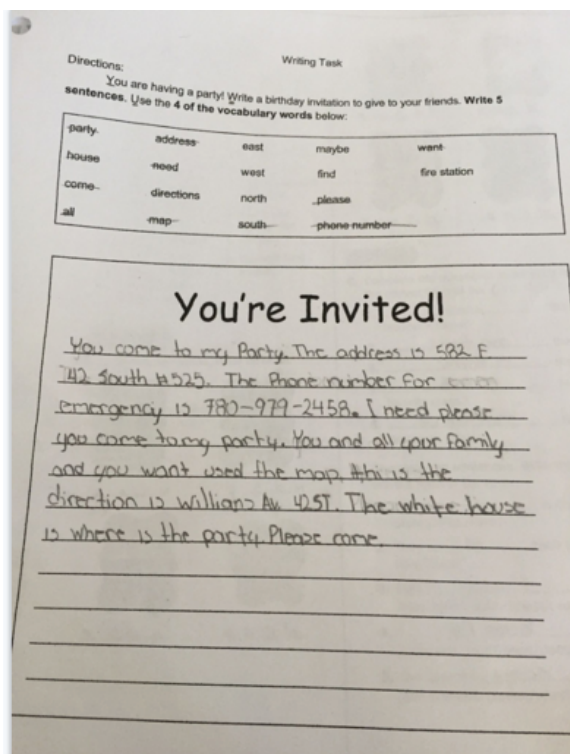 Writing Task
Directions:
You are having a party! Write a birthday invitation to give to your friends. Write 5
sentences. Use the 4 of the vocabulary words below:
party address east maybe want
house need west find fire station
come directions north please
all map south phone number
You're Invited!
You come to my Party. The address is 582 E.
42 South #525. The Phone number for
emergency is 780-979-2458. I need please
you come to my party. You and all your Family
and you want used the map. thi is the
direction is Willians Av. 425T. The white house
is where is the party. Please come.